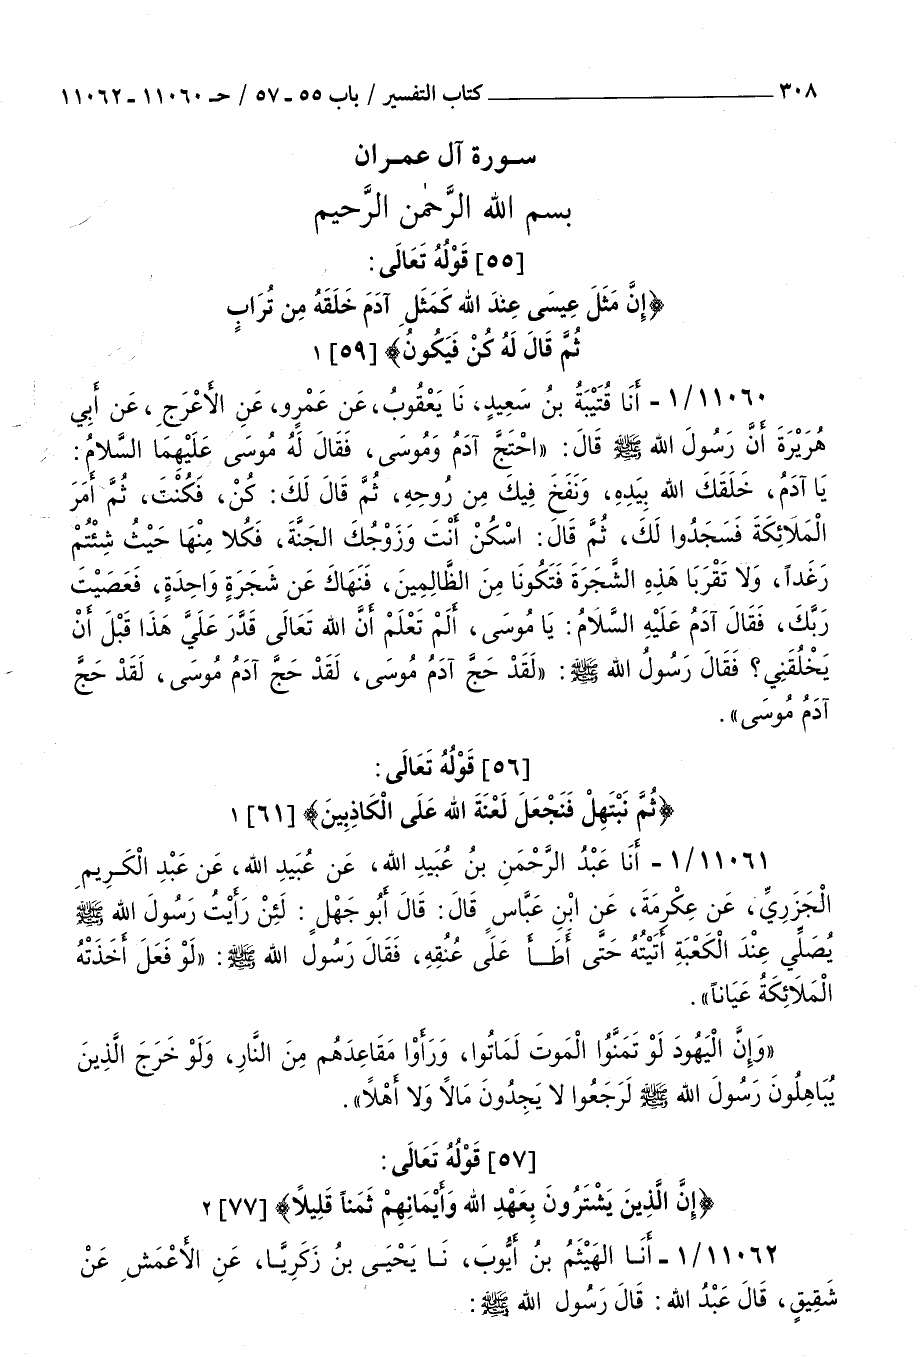 ٣٠٨ ــــــــــــــــ كتاب التفسير / باب ٥٥ ـ ٥٧ / حـ ١١٠٦٠ ـ ١١٠٦٢
سورة آل عمران
بسم الله الرَّحمٰن الرَّحيم
[٥٥] قَوْلُهُ تَعَالَى:
﴿إِنَّ مَثَلَ عِيسَى عِندَ الله كَمَثَلِ آدَمَ خَلَقَهُ مِن تُرَابٍ
ثُمَّ قَالَ لَهُ كُنْ فَيَكُونُ﴾ [٥٩] ١
١/١١٠٦٠ - أَنَا قُتَيْبَةُ بنُ سَعِيدٍ، نَا يَعْقُوبُ، عَن عَمْرٍو، عَنِ الأَعْرَجِ، عَن أَبِي
هُرَيْرَةَ أَنَّ رَسُولَ الله ﷺ قَالَ: «احْتَجَّ آدَمُ وَمُوسَى، فَقَالَ لَهُ مُوسَى عَلَيْهِمَا السَّلامُ:
يَا آدَمُ، خَلَقَكَ الله بِيَدِهِ، وَنَفَخَ فِيكَ مِن رُوحِهِ، ثُمَّ قَالَ لَكَ: كُنْ، فَكُنْتَ، ثُمَّ أَمَرَ
الْمَلائِكَةَ فَسَجَدُوا لَكَ، ثُمَّ قَالَ: اسْكُنْ أَنْتَ وَزَوْجُكَ الجَنَّةَ، فَكُلا مِنْهَا حَيْثُ شِئْتُمْ
رَغَداً، وَلا تَقْرَبَا هَذِهِ الشَّجَرَةَ فَتَكُونَا مِنَ الظَّالِمِينَ، فَنَهَاكَ عَن شَجَرَةٍ وَاحِدَةٍ، فَعَصَيْتَ
رَبَّكَ، فَقَالَ آدَمُ عَلَيْهِ السَّلامُ: يَا مُوسَى، أَلَمْ تَعْلَمْ أَنَّ الله تَعَالَى قَدَّرَ عَلَيَّ هَذَا قَبْلَ أَنْ
يَخْلُقَنِي؟ فَقَالَ رَسُولُ الله ﷺ: «لَقَدْ حَجَّ آدَمُ مُوسَى، لَقَدْ حَجَّ آدَمُ مُوسَى، لَقَدْ حَجَّ
آدَمُ مُوسَى».
[٥٦] قَوْلُهُ تَعَالَى:
﴿ثُمَّ نَبْتَهِلْ فَنَجْعَلَ لَعْنَةَ الله عَلَى الْكَاذِبِينَ﴾ [٦١] ١
١/١١٠٦١ - أَنَا عَبْدُ الرَّحْمَنِ بنُ عُبَيدِ الله، عَن عُبَيدِ الله، عَن عَبْدِ الْكَرِيمِ
الْجَزَرِيِّ، عَن عِكْرِمَةَ، عَن ابنِ عَبَّاسٍ قَالَ: قَالَ أَبُو جَهْلٍ: لَئِنْ رَأَيْتُ رَسُولَ الله ﷺ
يُصَلِّي عِنْدَ الْكَعْبَةِ أَتَيْتُهُ حَتَّى أَطَأَ عَلَى عُنُقِهِ، فَقَالَ رَسُولُ الله ﷺ: «لَوْ فَعَلَ أَخَذَتْهُ
الْمَلَائِكَةُ عَيَاناً».
«وَإِنَّ الْيَهُودَ لَوْ تَمَنَّوُا الْمَوتَ لَمَاتُوا، وَرَأَوْا مَقَاعِدَهُم مِنَ النَّارِ، وَلَوْ خَرَجَ الَّذِينَ
يُبَاهِلُونَ رَسُولَ الله ﷺ لَرَجَعُوا لا يَجِدُونَ مَالاً وَلا أَهْلاً».
[٥٧] قَوْلُهُ تَعَالَى:
﴿إِنَّ الَّذِينَ يَشْتَرُونَ بِعَهْدِ الله وَأَيْمَانِهِمْ ثَمَناً قَلِيلاً﴾ [٧٧] ٢
١/١١٠٦٢ - أَنَا الهَيْثَمُ بنُ أَيُّوبَ، نَا يَحْيَى بنُ زَكَرِيَّا، عَنِ الأَعْمَشِ عَنْ
شَقِيقٍ، قَالَ عَبْدُ الله: قَالَ رَسُولُ الله ﷺ: